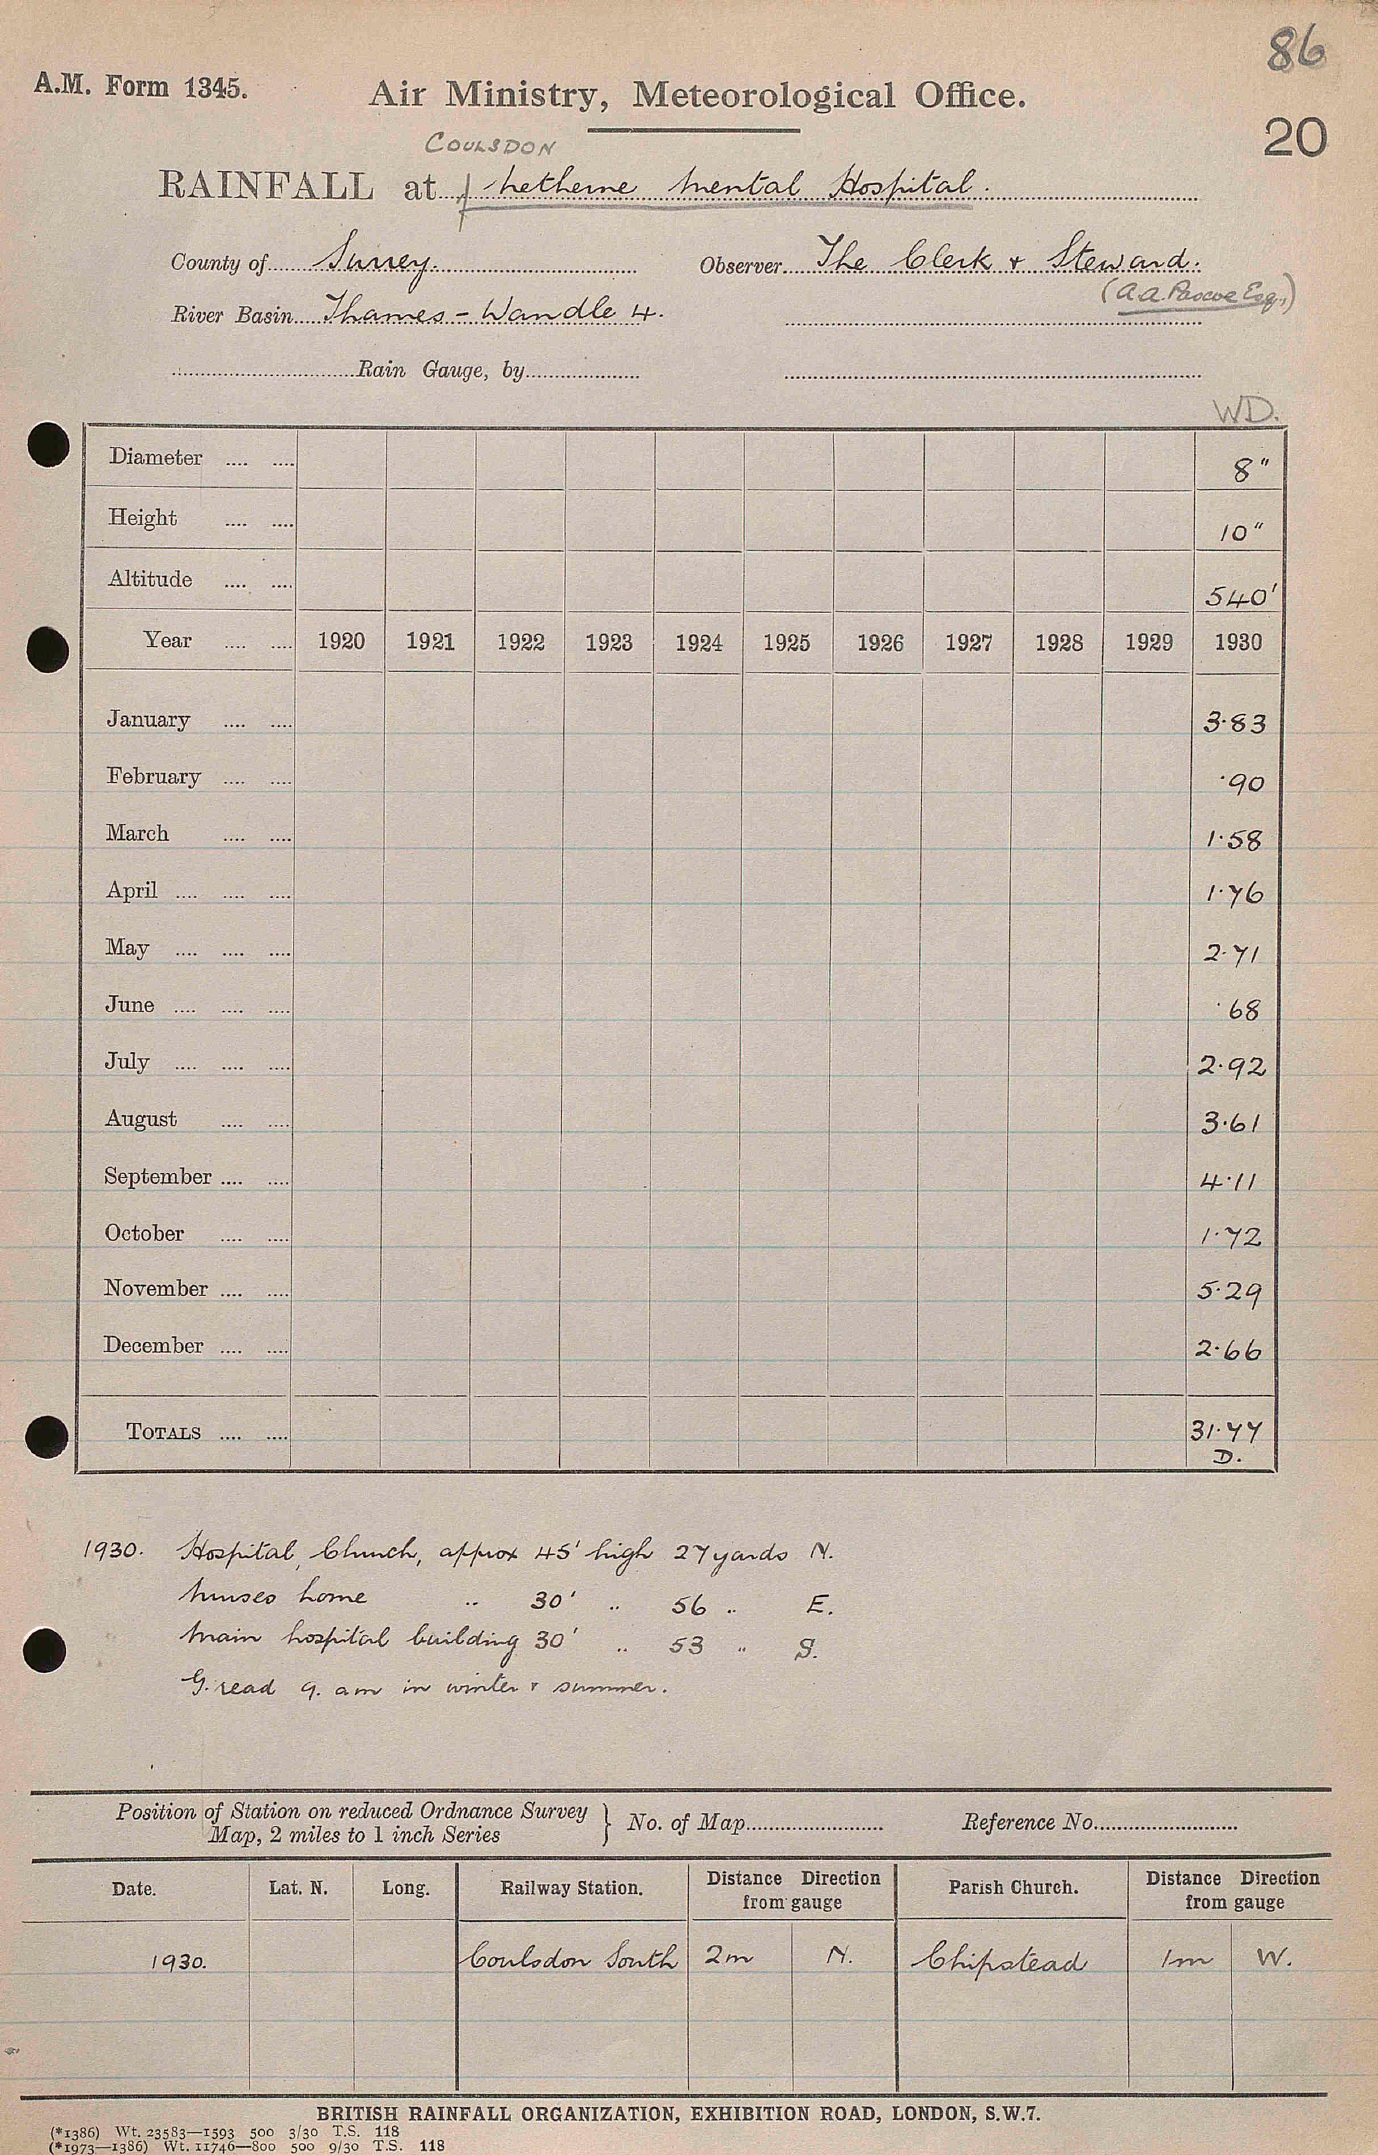 86
A.M. Form 1345.
Air Ministry, Meteorological Office.
20
COULSDON
RAINFALL at Netherne Mental Hospital.
County of Surrey. Observer The Clerk + Steward.
(A.A. Pascoe Esq.,)
River Basin Thames - Wandle 4.
Rain Gauge, by
WD.
Diameter .... .... 8"
Height .... .... 10"
Altitude .... .... 540'
Year .... .... 1920 1921 1922 1923 1924 1925 1926 1927 1928 1929 1930
January .... .... 3·83
February .... .... ·90
March .... .... 1·58
April .... .... .... 1·76
May .... .... .... 2·71
June .... .... .... ·68
July .... .... .... 2·92
August .... .... 3·61
September .... .... 4·11
October .... .... 1·72
November .... .... 5·29
December .... .... 2·66
TOTALS .... .... 31·77
D.
1930. Hospital Church, approx 45' high 27 yards N.
Nurses home " 30' " 56 " E.
Main hospital building 30' " 53 " S.
G. read 9. am in winter + summer.
Position of Station on reduced Ordnance Survey } No. of Map Reference No.
Map, 2 miles to 1 inch Series
Date. Lat. N. Long. Railway Station. Distance Direction from gauge Parish Church. Distance Direction from gauge
1930. Coulsdon South 2m N. Chipstead 1m W.
BRITISH RAINFALL ORGANIZATION, EXHIBITION ROAD, LONDON, S.W.7.
(*1386) Wt. 23583—1593 500 3/30 T.S. 118
(*1973—1386) Wt. 11746—800 500 9/30 T.S. 118